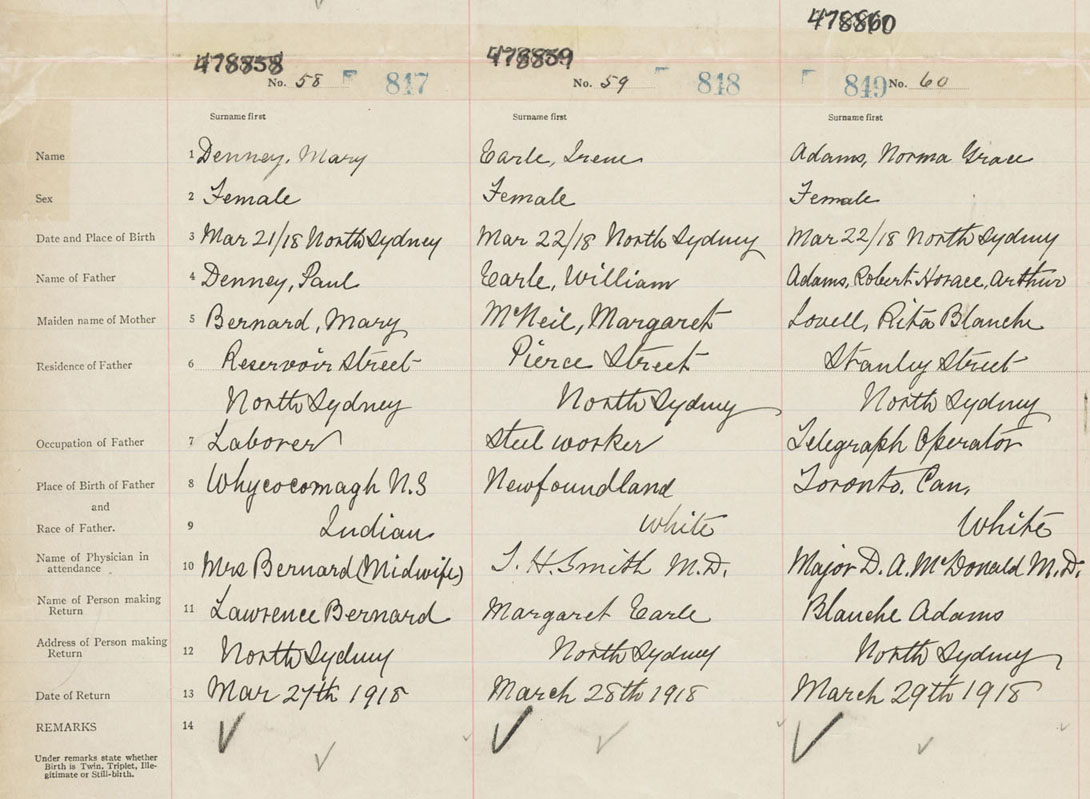 478858 478859 478860
No. 58 847 No. 59 848 849 No. 60
Surname first Surname first Surname first
Name 1 Denney, Mary Earle, Irene Adams, Norma Grace
Sex 2 Female Female Female
Date and Place of Birth 3 Mar 21/18 North Sydney Mar 22/18 North Sydney Mar 22/18 North Sydney
Name of Father 4 Denney, Paul Earle, William Adams, Robert Horace, Arthur
Maiden name of Mother 5 Bernard, Mary McNeil, Margaret Lovell, Rita Blanche
Residence of Father 6 Reservoir Street Pierce Street Stanley Street
North Sydney North Sydney North Sydney
Occupation of Father 7 Laborer Steel worker Telegraph Operator
Place of Birth of Father 8 Whycocomagh N.S Newfoundland Toronto. Can,
and
Race of Father. 9 Indian White White
Name of Physician in
attendance 10 Mrs Bernard (Midwife) T. H. Smith M.D. Major D. A. McDonald M.D.
Name of Person making
Return 11 Lawrence Bernard Margaret Earle Blanche Adams
Address of Person making
Return 12 North Sydney North Sydney North Sydney
Date of Return 13 Mar 27th 1918 March 28th 1918 March 29th 1918
REMARKS 14
Under remarks state whether
Birth is Twin, Triplet, Ille-
gitimate or Still-birth.